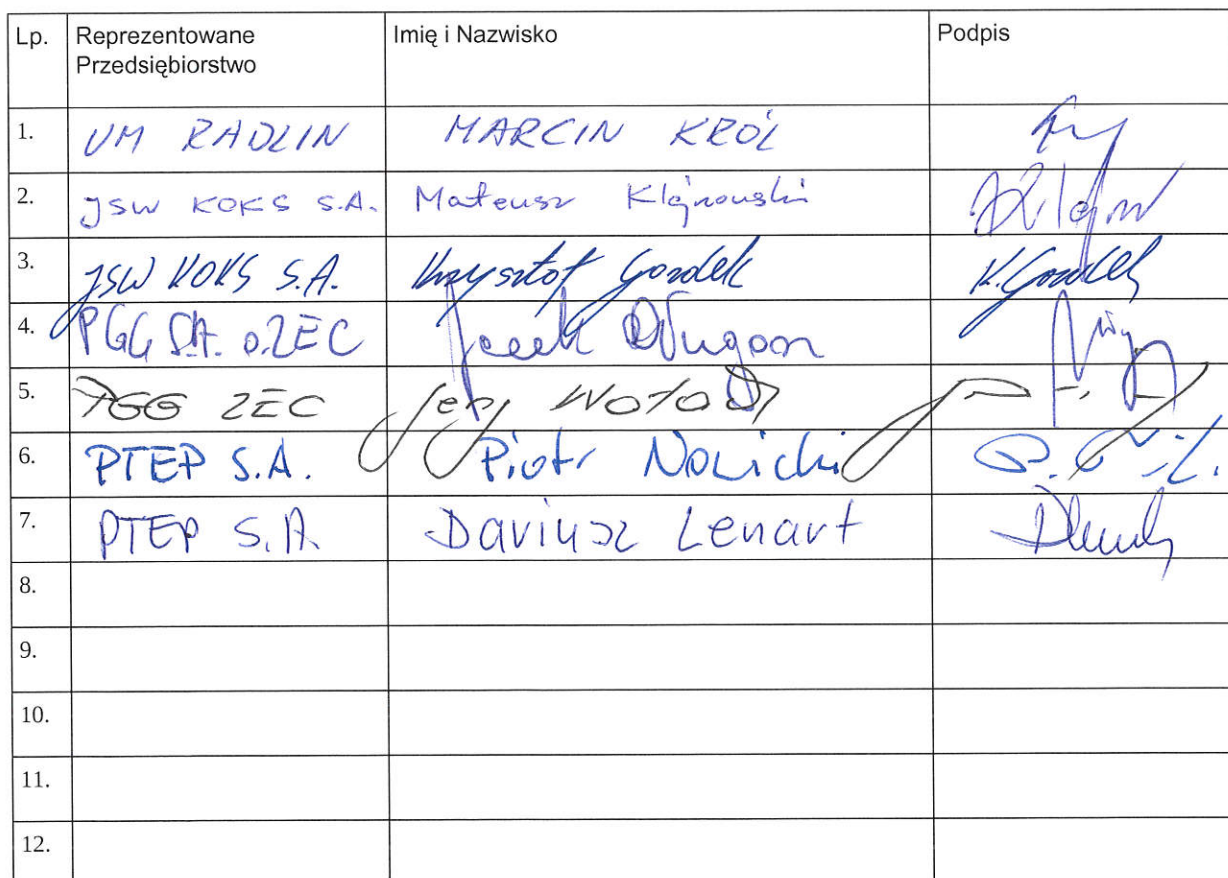 Lp. Reprezentowane Przedsiębiorstwo Imię i Nazwisko Podpis
1. UM RADLIN MARCIN KRÓL
2. JSW KOKS S.A. Mateusz
3. JSW KOKS S.A. Krzysztof Gondek K. Gondek
4. PGG S.A. o.ZEC Jacek
5. PGG ZEC Jerzy
6. PTEP S.A. Piotr Nowicki
7. PTEP S.A. Dariusz Lenart
8.
9.
10.
11.
12.